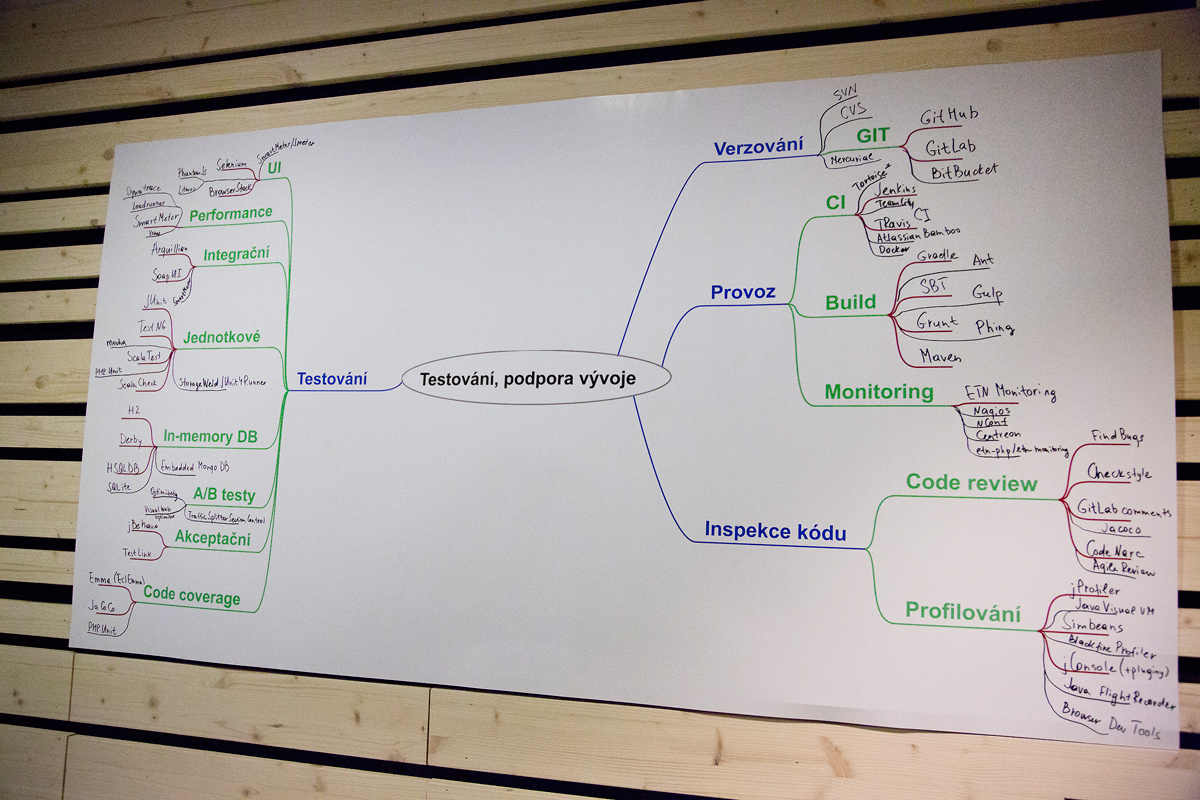 Testování, podpora vývoje
Testování
UI
SmartMeter/Jmeter
Selenium
PhantomJs
BrowserStack
Performance
Dynatrace
Loadrunner
SmartMeter
Integrační
Arquillian
SoapUI
SmartMeter
Jednotkové
JUnit
TestNG
mocha
ScalaTest
PHPUnit
ScalaCheck
StorageWeld JUnit4Runner
In-memory DB
H2
Derby
HSQLDB
SQLite
Embedded Mongo DB
A/B testy
Optimizely
Visual Web
optimizer
Traffic Splitter Section Control
Akceptační
jBehave
TestLink
Code coverage
Emma (EclEmma)
JaCoCo
PHPUnit
Verzování
SVN
CVS
GIT
Mercurial
GitHub
GitLab
BitBucket
Provoz
CI
Tortoise*
Jenkins
TeamCity
Travis CI
Atlassian Bamboo
Docker
Build
Gradle
Ant
SBT
Gulp
Grunt
Phing
Maven
Monitoring
ETN Monitoring
Nagios
NConf
Centreon
etn-php/etn-monitoring
Inspekce kódu
Code review
FindBugs
Checkstyle
GitLab comments
Jacoco
CodeNarc
Agile Review
Profilování
jProfiler
Java Visual VM
Simbeans
Blackfire Profiler
jConsole (+pluginy)
Java Flight Recorder
Browser Dev Tools